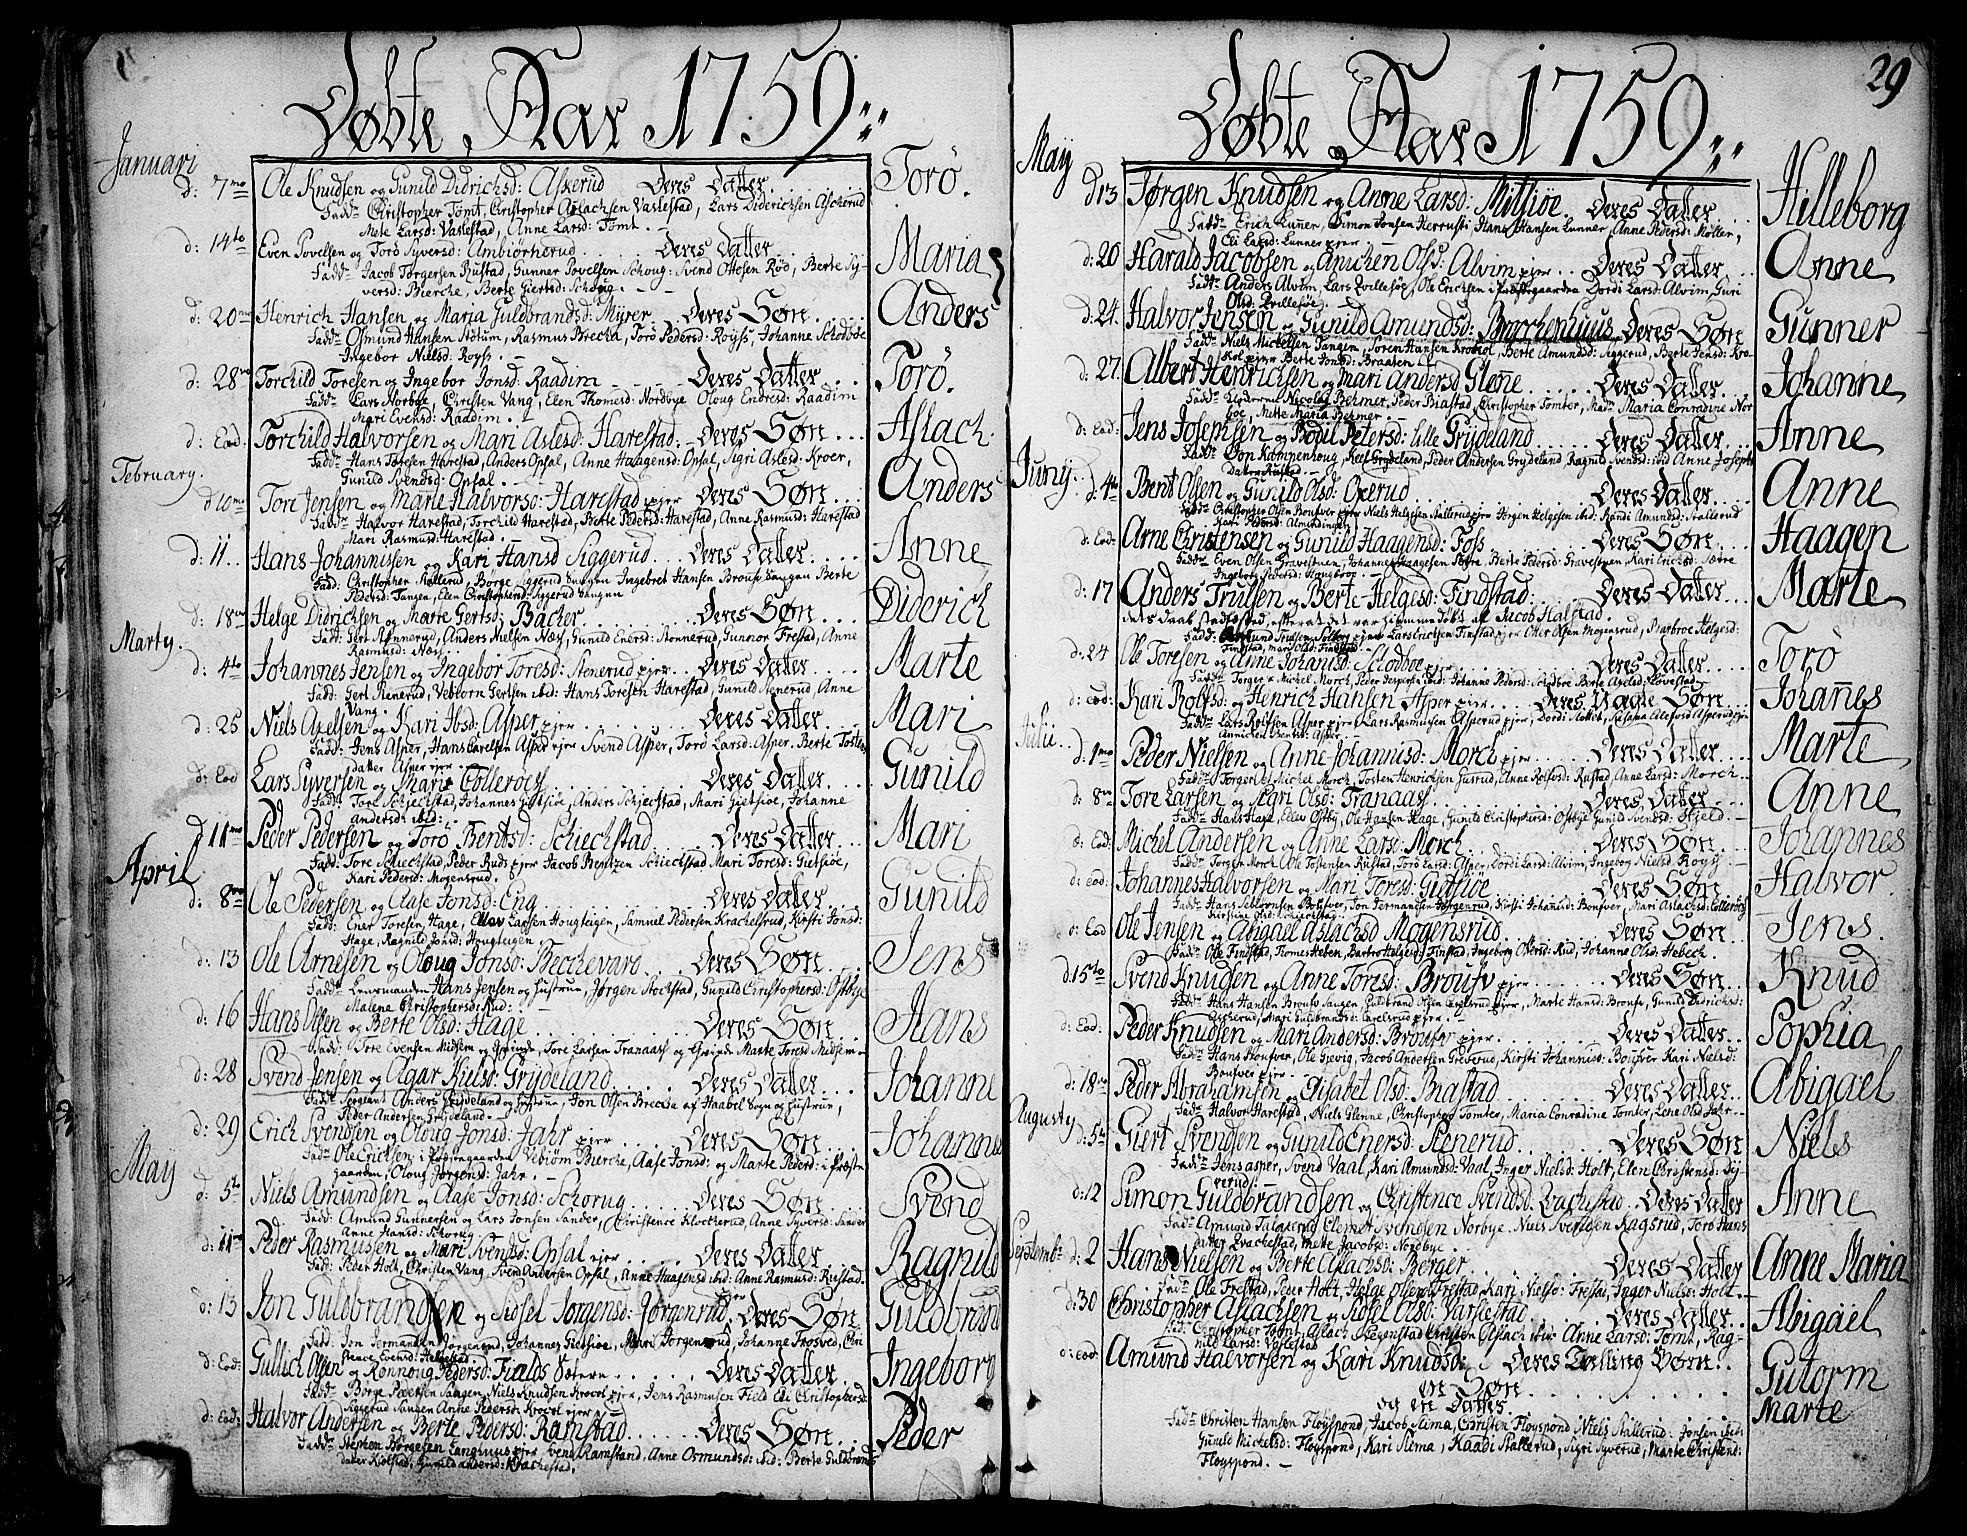 Døbte Aar 1759
Januari
d: 7mo Ole Knudsen og Gunild Didrichsd: Askerud Deres Datter Torø.
Fadd: Christopher Tomt, Christopher Aslachsen Vaslestad, Lars Diderichsen Ascherud
Mete Larsd: Vaslestad, Anne Larsd: Tomt.
d: 14to Even Povelsen og Torø Syversd: Ambiørnerud. Deres Datter Maria
Fadd: Jacob Torgersen Rustad, Gunner Povelsen Schoug, Svend Ottesen Rød, Berte Sy-
versd: Bierche, Berte Giertsd: Schoug.
d: 20mo Henrich Hansen og Maria Guldbrandsd: Myrer Deres Søn Anders
Fadd: Osmund Hansen Notum, Rasmus Brecka, Torø Pedersd: Royss, Johanne Schodbøe
Ingebor Nielsd: Royss.
d: 28 Torchild Toresen og Ingebor Jonsd: Raadim Deres Datter Torø.
Fadd: Lars Norbye, Christen Vang, Elen Thomesd: Nordbye Oloug Endresd: Raadim
Mari Evensd: Raadim.
d: Eod. Torchild Halvorsen og Mari Aslesd: Harestad Deres Søn Aslach
Fadd: Hans Toresen Harestad, Anders Opsal, Anne Haagensd: Opsal, Sigri Aslesd: Kroer,
Gunild Svendsd: Opsal.
February.
d 10mo Tore Jensen og Marte Halvorsd: Harestad ejer Deres Søn Anders
Fadd: Halvor Harestad, Torchild Harestad, Berte Pedersd: Harestad, Anne Rasmusd: Harestad
Mari Rasmusd: Harestad.
d: 11. Hans Johannissen og Kari Hansd Siggerud Deres Datter Anne
Fadd: Christopher Møllerud, Børge Siggerud Saugen Ingebret Hansen Broufs Saugen Berte
Pedersd: Tangen, Elen Christophersd: Siggerud Saugen
d: 18 Helge Didrichsen og Marte Gertsd: Bacher Deres Søn Diderich
Fadd: Gert Stennerud, Anders Nielsen Næss, Gunild Enersd: Stennerud, Gunnor Frestad, Anne
Rasmusd: Næss.
Marty.
d: 4to Johannes Jensen og Ingebor Toresd: Stenerud ejer Deres Datter Marte
Fadd: Gert Stenerud, Vebiorn Gertsen ibid: Hans Toresen Harestad, Gunild Stenerud, Anne
Vang.
d: 25 Niels Axelsen og Kari Ibsd: Asper ejer Deres Datter Mari
Fadd: Jens Asper, Hans Carelsen Asper ejer Svend Asper, Torø Larsd: Asper. Berte Tosten
datter Asper ejer.
d: Eod Lars Syversen og Mari Tollerøes Deres Datter Gunild
Fadd: Tore Schiechstad, Johannes Gietsiøe, Anders Schiechstad, Mari Gietsiøe, Johanne
Andersd: ibid:
d 11mo Peder Pedersen og Torø Bentsd: Schiechstad Deres Datter Mari
Fadd: Tore Schiechstad, Peder Ruds ejer Jacob Bentzen Schiechstad Mari Toresd: Gietsiøe,
Kari Pedersd: Mogensrud.
April
d: 8vo Ole Pedersen og Aase Jonsd: Eng Deres Datter Gunild
Fadd: Ener Toresen Hage, Ellev Larssen Hougteigen, Samuel Pedersen Krachelsrud, Kirsti Jonsd:
Hage, Ragnild Jonsd: Hougteigen.
d: 13 Ole Arnesen og Oloug Jonsd: Becchevard Deres Søn Jens
Fadd: Lensmanden Hans Jensen og Hustrue, Jørgen Stochstad, Gunild Christophersd: Ostbye
Malene Christophersd: Rud:
d: 16 Hans Olsen og Berte Olsd: Hage Deres Søn Hans
Fadd: Tore Evensen Midsem og Qvinde, Tore Larsen Tranaass og Qvinde Marte Toresd Midsem
d: 28 Svend Jensen og Agar Kielsd: Grydeland Deres Datter Johanne
Fadd: Sergeant Anders Grydeland og Hustrue, Jon Olsen Brecka af Haabel Sogn og Hustrue,
Peder Andersen Grydeland.
d: 29 Erich Svendsen og Oloug Jonsd: Jahr ejer Deres Søn Johannes
Fadd: Ole Ericksen i Præstegaarden Vebiøm Bierche, Aase Jonsd: og Marte Pedersd: i Præste
gaarden, Oloug Jørgensd: Jahr.
May
d: 5to Niels Amundsen og Aase Jonsd: Schorug Deres Søn Svend
Fadd: Amund Gunnersen og Lars Jonsen Sander, Christence Klocherud, Anne Syversd: Sander
Anne Hansd: Schorug
d: 11mo Peder Rasmussen og Mari Svendsd: Opsal ejer Deres Datter Ragnild
Fadd: Peder Holt, Christen Vang, Svend Andersen Opsal, Anne Haagensd: ibid: Anne Rasmusd: Rustad.
d: 13 Jon Guldbrandsen og Sidsel Jørgensd: Jørgenrud, Deres Søn Guldbrand
Fadd: Jon Jermandsen Jørgenrud, Johannes Gietsiøe, Mari Jørgenrud, Johanne Trosved, Chri
stence Evensd: Helgestad.
d: Eod: Gullich Olsen og Ronnoug Pedersd: Fields Sætern Deres Datter Ingeborg
Fadd: Borge Pedersen Saugen, Niels Knudsen Krocol ejer, Jens Rasmusen Field Edi Christophersd:
Siggerud Saugen Anne Pedersd: Krocol ejer.
d: Eod: Halvor Andersen og Berte Pedersd: Ramstad Deres Søn Peder
Fadd: Stephen Børgesen Langhuus ejer Svend Ramstad, Anne Osmundsd: ibid: Berte Guldbrands
dater Kiolstad, Gunild Andersd: Krachestad.
29
Døbte Aar 1759
May
d 13 Jørgen Knudsen og Anne Larsd: Mitsiøe. Deres Datter Helleborg
Fadd: Erich Lunner, Simon Jonsen Herrusti Hans Hansen Lunner, Anne Pedersd: Møller,
Eli Larsd: Lunner ejer
d: 20 Harald Jacobsen og Anichen Olsd: Alvim ejer Deres Datter Anne
Fadd: Anders Alvim, Lars Qvillesøe, Ole Erichsen i Præstegaarden Dordi Larsd: Alvim, Guri
Olsd: Qvillesøe.
d: 24. Halvor Jensen og Gunild Amundsd: Brychenhuus Deres Søn Gunner
Fadd: Niels Mickelsen Tangen, Søren Hansen Krocol, Berte Amundsd: Siggerud, Berte Jensd: Kro-
kol ejer Berte Jonsd: Braaten
d: 27. Albert Henrichsen og Mari Andersd Glenne Deres Datter Johanne
Fadd: Klockeren Nicolay Behmer, Peder Biastad, Christopher Tomter, Madme Maria Conradine Nor
bøe, Mette Maria Behmer.
d: Eod: Jens Josephsen og Bodil Petersd: Lille Grydeland Deres Datter Anne
Fadd: Jon Kampenhoug, Keel Grydeland, Peder Andersen Grydeland Ragnild Svendsd: ibid Anne Josephs
datter Rustad.
Juny.
d: 4to Bent Olsen og Gunild Olsd: Oxerud Deres Datter Anne
Fadd: Christopher Olsen Boufver ejer Niels Helgesen Stallerud ejer Jørgen Helgesen ibid: Randi Amundsd: Stallerud
Kari Pedersd: Almerdingen
d: Eod: Arne Christensen og Gunild Haagensd: Foss Deres Søn Haagen
Fadd: Even Olsen Gravestuen, Johannes Haagesen Søtre, Berte Pedersd: Gravestuen Kari Ericksd: Søtre
Ingeborg Pedersd: Hougbroe.
d: 17 Anders Trulsen og Berte Helgesd: Findstad Deres Datter Marte
dets Daab stadfested, efter at det var hiemme døbt af Jacob Halstad.
Fadd: Amund Trulsen Solberg ejer Lars Erichsen Finstad ejer Otter Olsen Mogensrud, Marbroe Helgesd:
Findstad, Mari Olsd: Findstad.
d: 24 Ole Toresen og Anne Johansd: Schodboe ejer Deres Datter Torø
Fadd: Torger og Michel Morch, Peder Jespersen ibid: Johanne Pedersd: Schodbøe Berte Axelsd: Lovestad
d: Eod: Kari Rolfsd: og Henrich Hansen Asper ejer Deres Uægte Søn Johannes
Fadd: Lars Rolfsen Asper ejer, Lars Rasmussen Asperud ejer, Dordi Nottet, Susana Olefsd Asperud ejer
Annicken Bentsd: Asper.
Julii.
d: 1mo Peder Nielsen og Anne Johannisd: Morch ejer Deres Datter Marte
Fadd: Torger og Michel Morch, Tosten Henrichsen Garud, Anne Rolfsd: Rustad Anne Larsd: Morch
d: 8vo Tore Larsen og Sigri Olsd: Tranaass Deres Datter Anne
Fadd: Hans Hage, Ellev Østby, Ole Hansen Hage, Gunild Christophersd: Ostbye Gunild Svendsd: Hield.
d: Eod: Michel Andersen og Anne Larsd: Morch Deres Søn Johannes
Fadd: Torger Morch, Ole Tostensen Rustad, Torø Larsd: Asper, Dordi Larsd: Alvim, Ingebor Nielsd Royss
d: Eod: Johannes Halvorsen og Mari Toresd: Gietsiøe Deres Søn Halvor
Fadd: Hans Schiønsen Boufver, Jon Jermandsen Jørgenrud, Kirsti Johannisd: Boufver, Mari Aslachsd: Tollerøes
Kirstine Olsd: Schiechstag.
d: Eod Ole Jensen og Abigael Aslachsd Mogensrud Deres Søn Jens.
Fadd: Ole Findstad, Tomes Heben, Barbro Helgesd Finstad, Ingeborg Olersd: Rud, Johanne Olsd: Hebech.
d: 15to Svend Knudsen og Anne Toresd: Broufv ejer Deres Søn Knud
Fadd: Hans Hansen Broufs Saugen, Guldbrand Olsen Carelsrud ejer, Marte Hansd: Broufv, Gunild Didrichsd:
Ascherud, Mari Guldbrandsd: Carelsrud ejer.
d: Eod: Peder Knudsen og Mari Andersd: Boufver ejer Deres Datter Sophia
Fadd: Hans Boufver, Ole Gevig, Jacob Andersen Goberud, Kirsti Johannisd: Boufver Kari Nielsd:
Boufver ejer.
d: 18vo Peder Abrahamsen og Elisabet Olsd: Biastad Deres Datter Abigael
Fadd: Halvor Harestad, Niels Glenne, Christopher Tomter, Maria Conradine Tomter, Lene Olsd Jahr
Augusty
d: 5to Giert Svendsen og Gunild Enersd: Stenerud Deres Søn Niels
Fadd: Jens Asper, Svend Vaal, Kari Amundsd: Vaal, Inger Nielsd: Holt, Elen Christensd: Sy-
verud:
d: 12 Simon Guldbrandsen og Christence Svendsd: Qvachestad Deres Datter Anne
Fadd: Amund Talaxrud Clemet Svendsen Norbye, Niels Svendsen Ragsrud, Torø Hans
datter Qvachestad, Mette Jacobsd: Nordbye.
Septembr
d: 2 Hans Nielsen og Berte Aslachsd: Berger Deres Datter Anne Maria
Fadd: Ole Frestad, Peder Holt, Helge Olsen Frestad, Kari Nielsd: Frestad, Inger Nielsd: Holt.
d: 30 Christopher Aslachsen og Sidsel Olsd: Varlestad Deres Datter Abigael
Fadd: Christopher Tomt, Aslach Hegenstad Christen Aslach ibid: Anne Larsd: Tomt, Rag-
nild Larsd: Vaslestad
d: Eod: Amund Halvorsen og Kari Knudsd: Deres Tvilling Børn.
en Søn Gutorm
og en Datter Marte
Fadd: Christen Hansen Floyspond, Jacob Slima, Christen Floyspond Niels Stallerud: Jonsen ibid:
Gunild Michelsd: Floyspond, Kari Slima, Kaadi Stallerud, Sigri Syverud, Marte Christensd:
Floyspond.